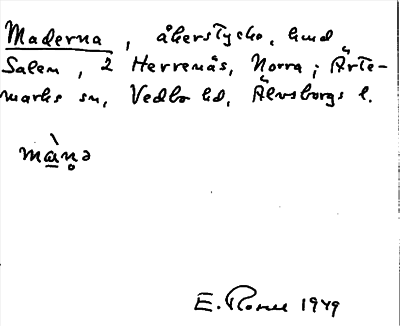 Maderna, åkerstycke, hmd
Salen, 2 Herrenäs, Norra; Ärte-
marks sn, Vedbo hd, Älvsborgs l.
màṇə
E. Rosell 1949